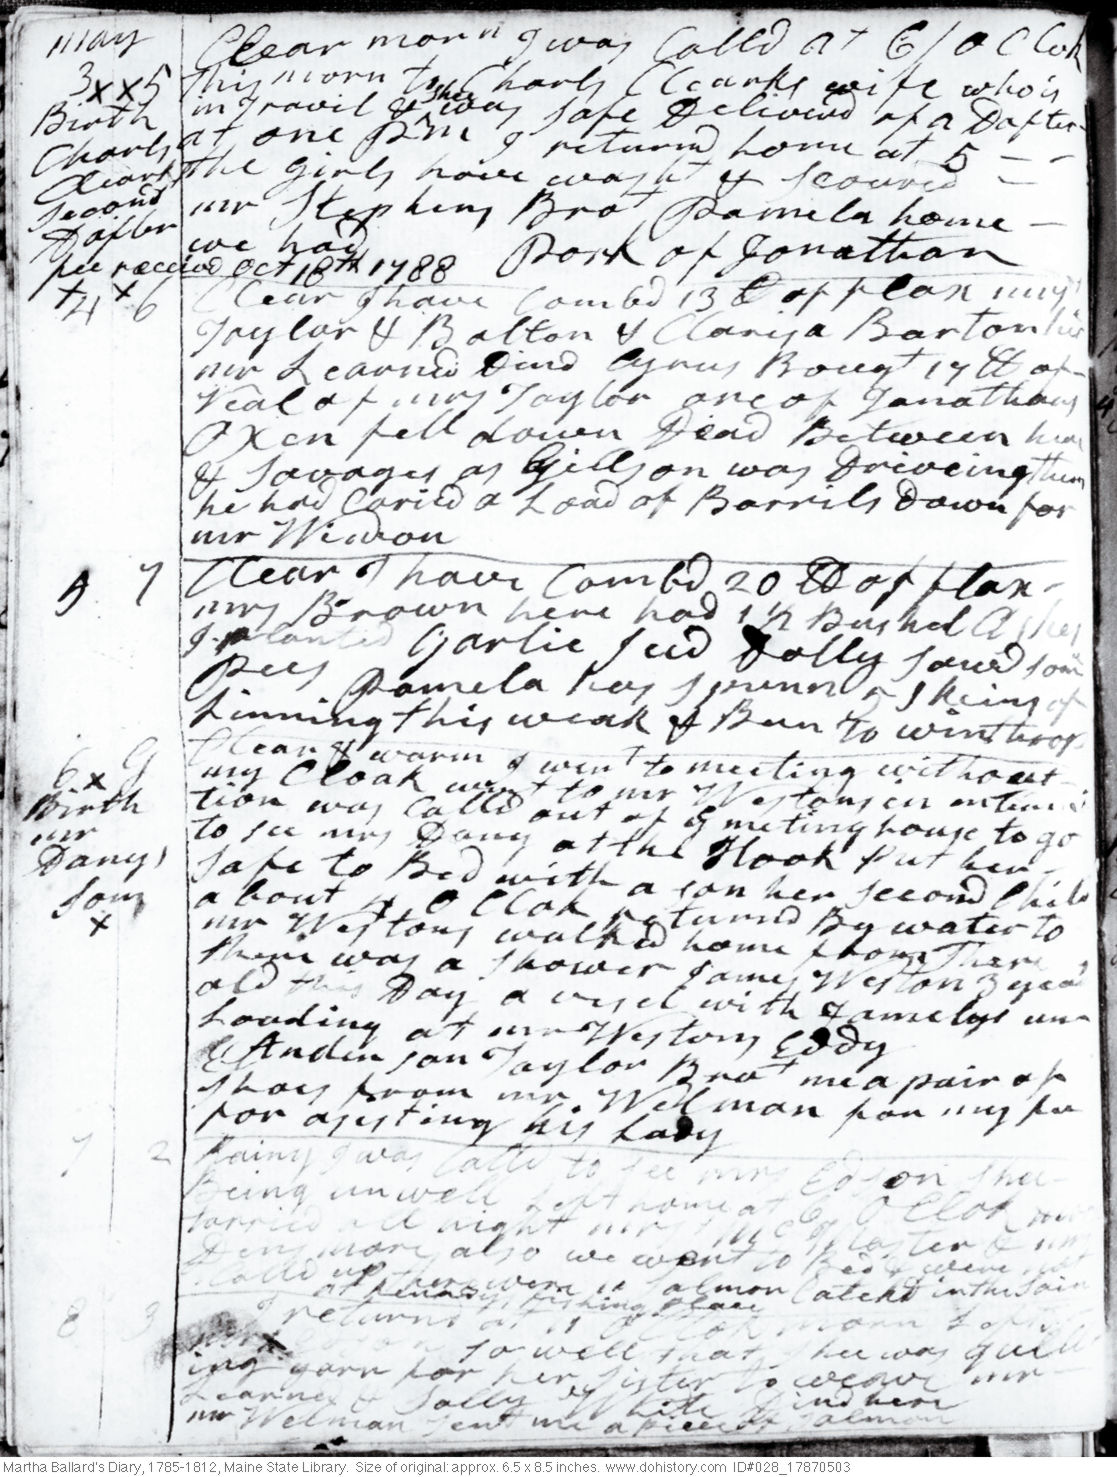 may
Clear morn n I was Calld at 6/ O Clok
3 x x 5
this morn to Charls Clearks wife who is
in Travil & shee was safe Delived of a Dafter
Birth
at one Pm I returnd home at 5 - -
Charls
the girls have washt & scoured
Clearks
second
mr Stephens Bro't Pamela home -
Dafter
we had Pork of Jonathan
fee received Oct 18th 1788
x 4 x 6
Clear I have Combd 13 lb of flax mrs
Taylor & Bolton & Clarisa Barton here
mr Learned Dind Cyrus Bougt 17 lb of
Veal of mrs Taylor one of Jonathans
Oxen fell down Dead Between here
& Savages as Gillson was Driveing them
he had Caried a Load of Barrils Down for
mr Widon
5 7
Clear I have Combd 20 lb of flax -
mrs Brown here had 1 1/2 Bushel Ashes
I planted Garlic seed Dolly sowd som
Pees Pamela has spunn 5 skeins of
Linning this weak & Bun to winthrop
6 x G
Clear & warm I went to meeting without
my Cloak went to mr Westons in
Birth
tion was Calld out of ye meting house to go
mr
to see mrs Dany at the Hook Put her
Danys
safe to Bed with a son her second Child
son
about 4 O Clok returnd By water to
x
mr Westons walkd home from There
there was a shower James Weston 3 years
old this Day a vesel with famelys un
Loading at mr Westons Eddy
Anderson Taylor Bro't me a pair of
shoes from mr Welman for my fee
for asisting his Lady
7 2
Rainy I was Calld to see mrs Edson shee
Being unwell Left home at 6 O Clok
tarried all night mrs & mrs
Densmore also we went to Bed & were not
Calld up there were 10 salmon Catcht in the Sain
at fishing Place
8 3
I returnd at 11 O Clok morn Left
mrs Edson so well that shee was quill
ing yarn for her sister to weave mr
Learned & Sally White Dind here
mr Welman sent me a piece of salmon
Martha Ballard's Diary, 1785-1812, Maine State Library. Size of original: approx. 6.5 x 8.5 inches. www.dohistory.com ID#028_17870503